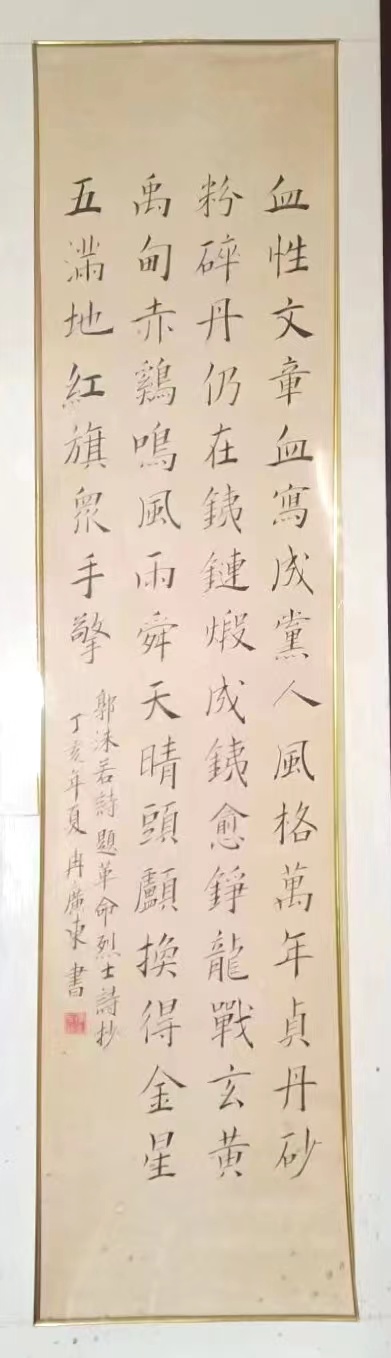 血性文章血寫成黨人風格萬年貞丹砂
粉碎丹仍在銕鏈煅成銕愈錚龍戰玄黄
禹甸赤鷄鳴風雨舜天晴頭顱換得金星
五滿地紅旗眾手擎
郭沫若詩題革命烈士詩抄
丁亥年夏冉廣東書